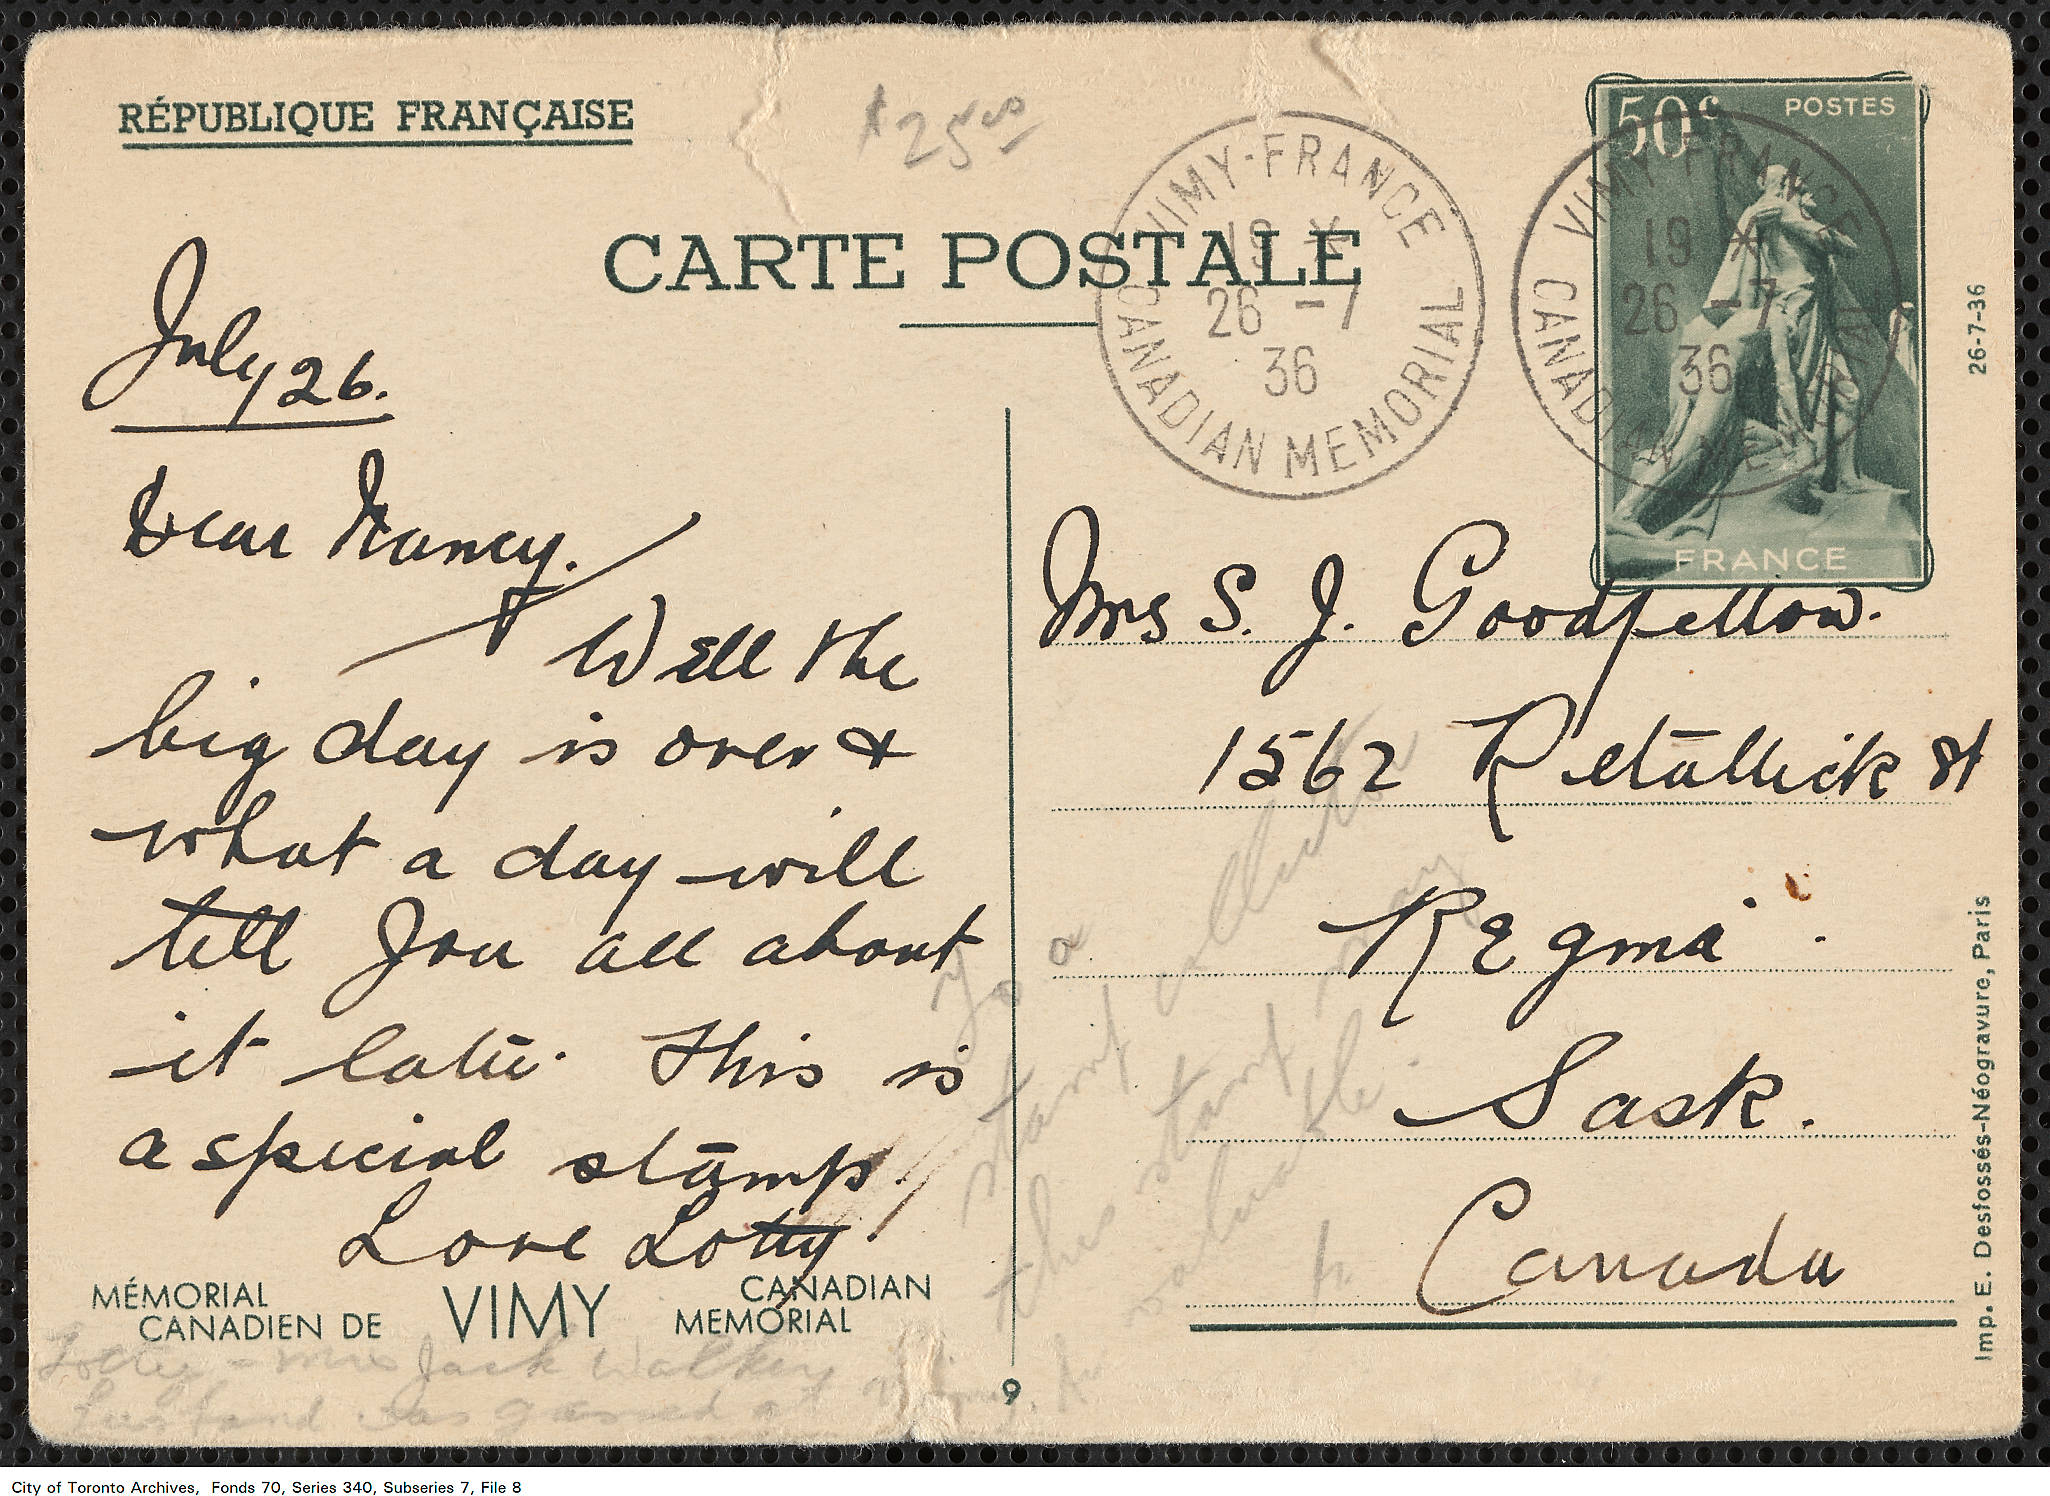 RÉPUBLIQUE FRANÇAISE
$25.00
CARTE POSTALE
VIMY-FRANCE
19 *
26 -7
36
CANADIAN MEMORIAL
50c POSTES
FRANCE
VIMY-FRANCE
19 *
26 -7
36
CANADIAN MEMORIAL
26-7-36
July 26.
Dear Nancy.
Well the
big day is over &
what a day will
tell you all about
it later. This is
a special stamp.
Love Lotty
MÉMORIAL
CANADIEN DE
VIMY
CANADIAN
MEMORIAL
Lotty - Mrs Jack Walker
husband was gassed at Vimy.
Mrs S. J. Goodfellow.
1562 Retallick St
Regina.
Sask.
Canada
To a
stamp collector
this stamp may
valuable.
9
Imp. E. Desfossés-Néogravure, Paris
City of Toronto Archives, Fonds 70, Series 340, Subseries 7, File 8